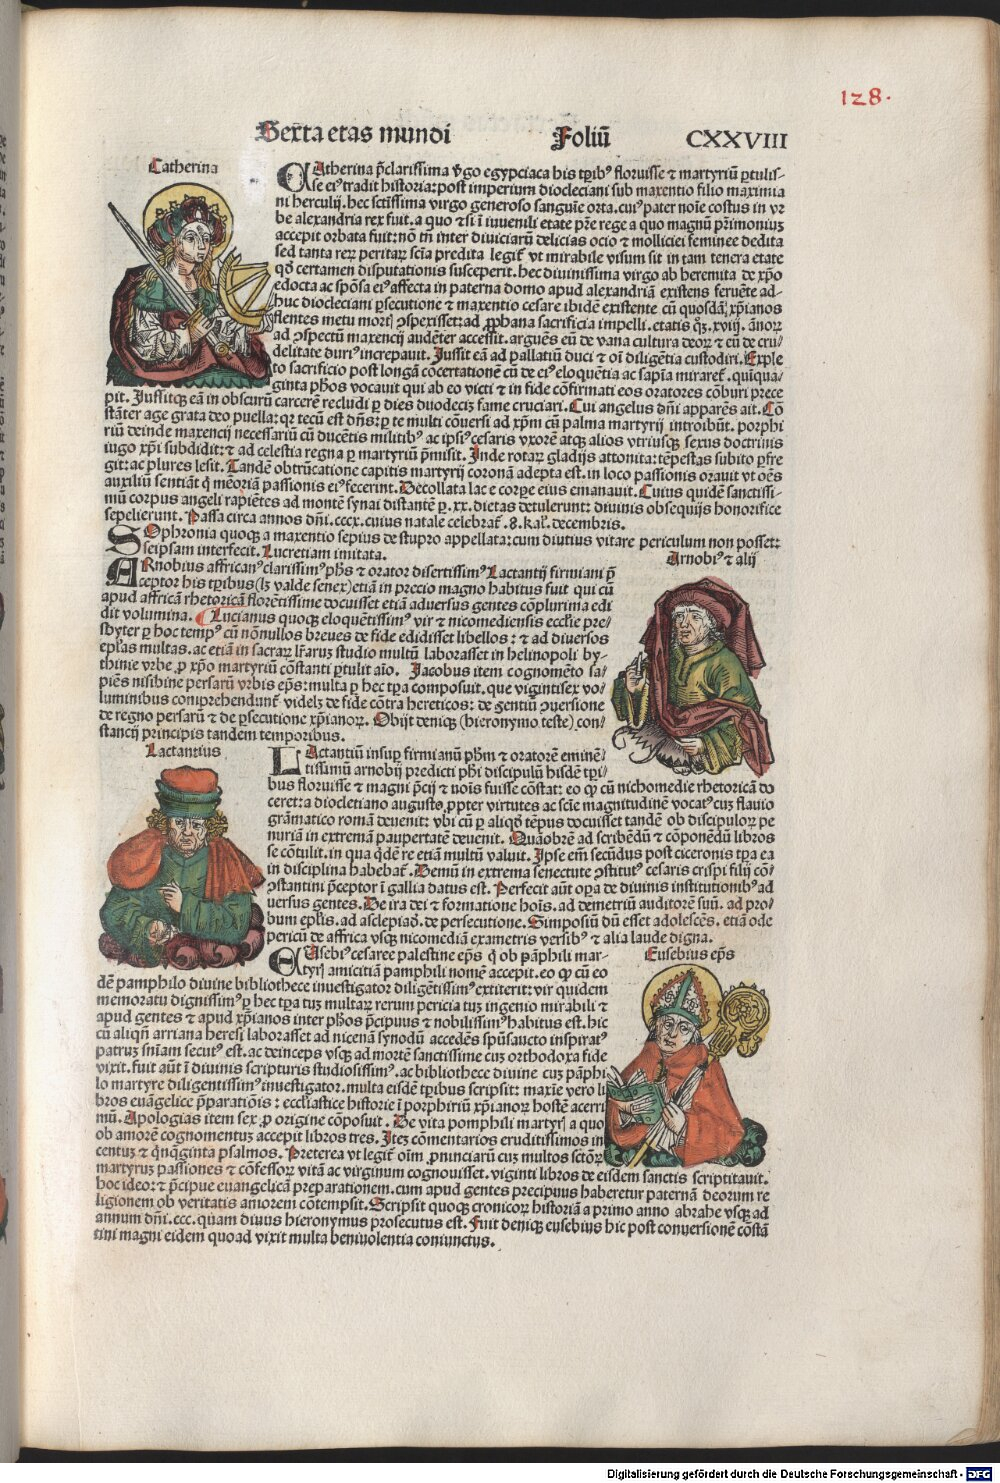 128.
Sexta etas mundi Foliū CXXVIII
Catherina
CAtherina p̄clarissima v̓go egypciaca his tp̄ibꝰ floruisse ⁊ martyriū ꝑtulis-
se eiꝰ tradit historia: post imperium diocleciani sub maxentio filio maximia
ni herculij. hec sctīssima virgo generoso sanguīe orta. cuiꝰ pater noīe costus in vr
be alexandria rex fuit. a quo ⁊ si ī iuuenili etate pr̄e rege a quo magnū pr̄imoniuꝫ
accepit orbata fuit: nō tn̄ inter diuiciarū delicias ocio ⁊ molliciei feminee dedita
sed tanta reꝝ peritaꝝ scīa predita legit᷑ vt mirabile visum sit in tam tenera etate
qd̓ certamen disputationis susceperit. hec diuinissima virgo ab heremita de xp̄o
edocta ac spōsa eiꝰ affecta in paterna domo apud alexandriā existens feruēte ad-
huc diocleciani ꝑsecutione ⁊ maxentio cesare ibidē existente cū quosdā xp̄ianos
flentes metu mortꝭ ꝯspexisset: ad ꝓphana sacrificia impelli. etatis qͣꝫ. xviij. ānoꝝ
ad ꝯspectū maxencij audēter accessit. arguēs eū de vana cultura deoꝝ ⁊ eū de cru/
delitate duriꝰ increpauit. Jussit eā ad pallatiū duci ⁊ oī diligētia custodiri. Exple
to sacrificio post longā cōcertationē cū de eiꝰ eloquētia ac sapīa miraret᷑. quīqua/
ginta ph̄os vocauit qui ab eo victi ⁊ in fide cōfirmati eos oratores cōburi prece
pit. Jussitqꝫ eā in obscurū carcerē recludi ꝑ dies duodeciꝫ fame cruciari. Cui angelus dn̄i apparēs ait. Cō
stāter age grata deo puella: qꝛ tecū est dn̄s: ꝑ te multi cōuersi ad xp̄m cū palma martyrij introibūt. porphi
riū deinde maxencij necessariū cū ducētis militibꝰ ac ipsiꝰ cesaris vxorē atqꝫ alios vtriusqꝫ sexus doctrinis
iugo xp̄i subdidit: ⁊ ad celestia regna ꝑ martyriū p̄misit. Inde rotaꝝ gladijs attonita: tēpestas subito ꝑfre
git: ac plures lesit. Tandē obtrūcatione capitis martyrij coronā adepta est. in loco passionis orauit vt oēs
auxiliū sentiāt q̄ mēoriā passionis eiꝰ fecerint. Decollata lac e corpe eius emanauit. Cuius quidē sanctissi-
mū corpus angeli rapiētes ad montē synai distantē ꝑ. xx. dietas detulerunt: diuinis obsequijs honorifice
sepelierunt. Passa circa annos dn̄i. cccx. cuius natale celebrat᷑. 8. kal̓. decembris.
SOphronia quoqꝫ a maxentio sepius de stupro appellata: cum diutius vitare periculum non posset:
seipsam interfecit. Lucretiam imitata.
Arnobiꝰ ⁊ alij
ARnobius affricanꝰ clarissimꝰ ph̄s ⁊ orator disertissimꝰ Lactantij firmiani p̄
ceptor his tp̄ibus (lꝫ valde senex) etiā in precio magno habitus fuit qui cū
apud affricā rhetoricā florētissime docuisset etiā aduersus gentes cōplurima edi
dit volumina. Lucianus quoqꝫ eloquētissimꝰ vir ⁊ nicomediensis ecclīe pre-
sbyter ꝑ hoc tempꝰ cū nōnullos breues de fide edidisset libellos: ⁊ ad diuersos
epl̄as multas. ac etiā in sacraꝝ lr̄aruꝫ studio multū laborasset in helinopoli by-
thinie vrbe ꝓ xp̄o martyriū cōstanti ꝑtulit aīo. Jacobus item cognomēto sa/
piēs nisibine persarū vrbis ep̄s: multa ꝑ hec tp̄a composuit. que vigintisex vo/
luminibus comprehendunt᷑ videlꝫ de fide cōtra hereticos: de gentiū ꝯuersione
de regno persarū ⁊ de ꝑsecutione xp̄ianoꝝ. Obijt deniqꝫ (hieronymo teste) con/
stancij principis tandem temporibus.
Lactantius
LActantiū insuꝑ firmianū ph̄m ⁊ oratorē eminē/
tissimū arnobij predicti ph̄i discipulū hisdē tp̄i/
bus floruisse ⁊ magni p̄cij ⁊ noīis fuisse cōstat: eo ꝙ cū nichomedie rhetoricā do
ceret: a diocletiano augusto ꝓpter virtutes ac scīe magnitudinē vocatꝰ cuꝫ flauio
grāmatico romā deuenit: vbi cū ꝑ aliqd̓ tēpus docuisset tandē ob discipuloꝝ pe
nuriā in extremā paupertatē deuenit. Quāobrē ad scribēdū ⁊ cōponēdū libros
se cōtulit. in qua qͥdē re etiā multū valuit. Ipse em̄ secūdus post ciceronis tp̄a ea
in disciplina habebat᷑. Demū in extrema senectute ꝯstitutꝰ cesaris crispi filij cō/
ꝯstantini p̄ceptor ī gallia datus est. Perfecit aūt opa de diuinis institutionibꝰ ad
uersus gentes. De ira dei ⁊ formatione hoīs. ad demetriū auditorē suū. ad pro/
bum epl̄is. ad asclepiad̓. de persecutione. Simposiū dū esset adolescēs. etiā ode
pericū de affrica vsqꝫ nicomediā exametris versibꝰ ⁊ alia laude digna.
EUsebiꝰ cesaree palestine ep̄s q̓ ob pāphili mar-
tyrꝭ amicitiā pamphili nomē accepit. eo ꝙ cū eo
Eusebius ep̄s
dē pamphilo diuine bibliothece inuestigator diligētissimꝰ extiterit: vir quidem
memoratu dignissimꝰ ꝑ hec tp̄a tuꝫ multaꝝ rerum pericia tuꝫ ingenio mirabili ⁊
apud gentes ⁊ apud xp̄ianos inter ph̄os p̄cipuus ⁊ nobilissimꝰ habitus est. hic
cū aliqn̄ arriana heresi laborasset ad nicenā synodū accedēs spūsancto inspiratꝰ
patruꝫ snīam secutꝰ est. ac deinceps vsqꝫ ad mortē sanctissime cuꝫ orthodoxa fide
vixit. fuit aūt ī diuinis scripturis studiosissimꝰ. ac bibliothece diuine cuꝫ pāphi/
lo martyre diligentissimꝰ inuestigator. multa eisdē tp̄ibus scripsit: maxīe vero li
bros euāgelice p̄paratiōis: eccl̄iastice historie ī porphiriū xp̄ianoꝝ hostē acerri
mū. Apologias item sex ꝓ origine cōposuit. De vita pomphili martyrꝭ a quo
ob amorē cognomentuꝫ accepit libros tres. Iteꝫ cōmentarios eruditissimos in
centuꝫ ⁊ qͥnqͣginta psalmos. Preterea vt legit᷑ oīm ꝓuinciarū cuꝫ multos sctōꝝ
martyruꝫ passiones ⁊ cōfessoꝝ vitā ac virginum cognouisset. viginti libros de eisdem sanctis scriptitauit.
hoc ideoꝝ ⁊ p̄cipue euangelicā preparationem. cum apud gentes precipuus haberetur paternā deorum re
ligionem ob veritatis amorem cōtempsit. Scripsit quoqꝫ cronicoꝝ historiā a primo anno abrahe vsqꝫ ad
annum dn̄i. ccc. quam diuus hieronymus prosecutus est. Fuit deniqꝫ eusebius hic post conuersionē cōstā
tini magni eidem quoad vixit multa beniuolentia coniunctus.
Digitalisierung gefördert durch die Deutsche Forschungsgemeinschaft - DFG